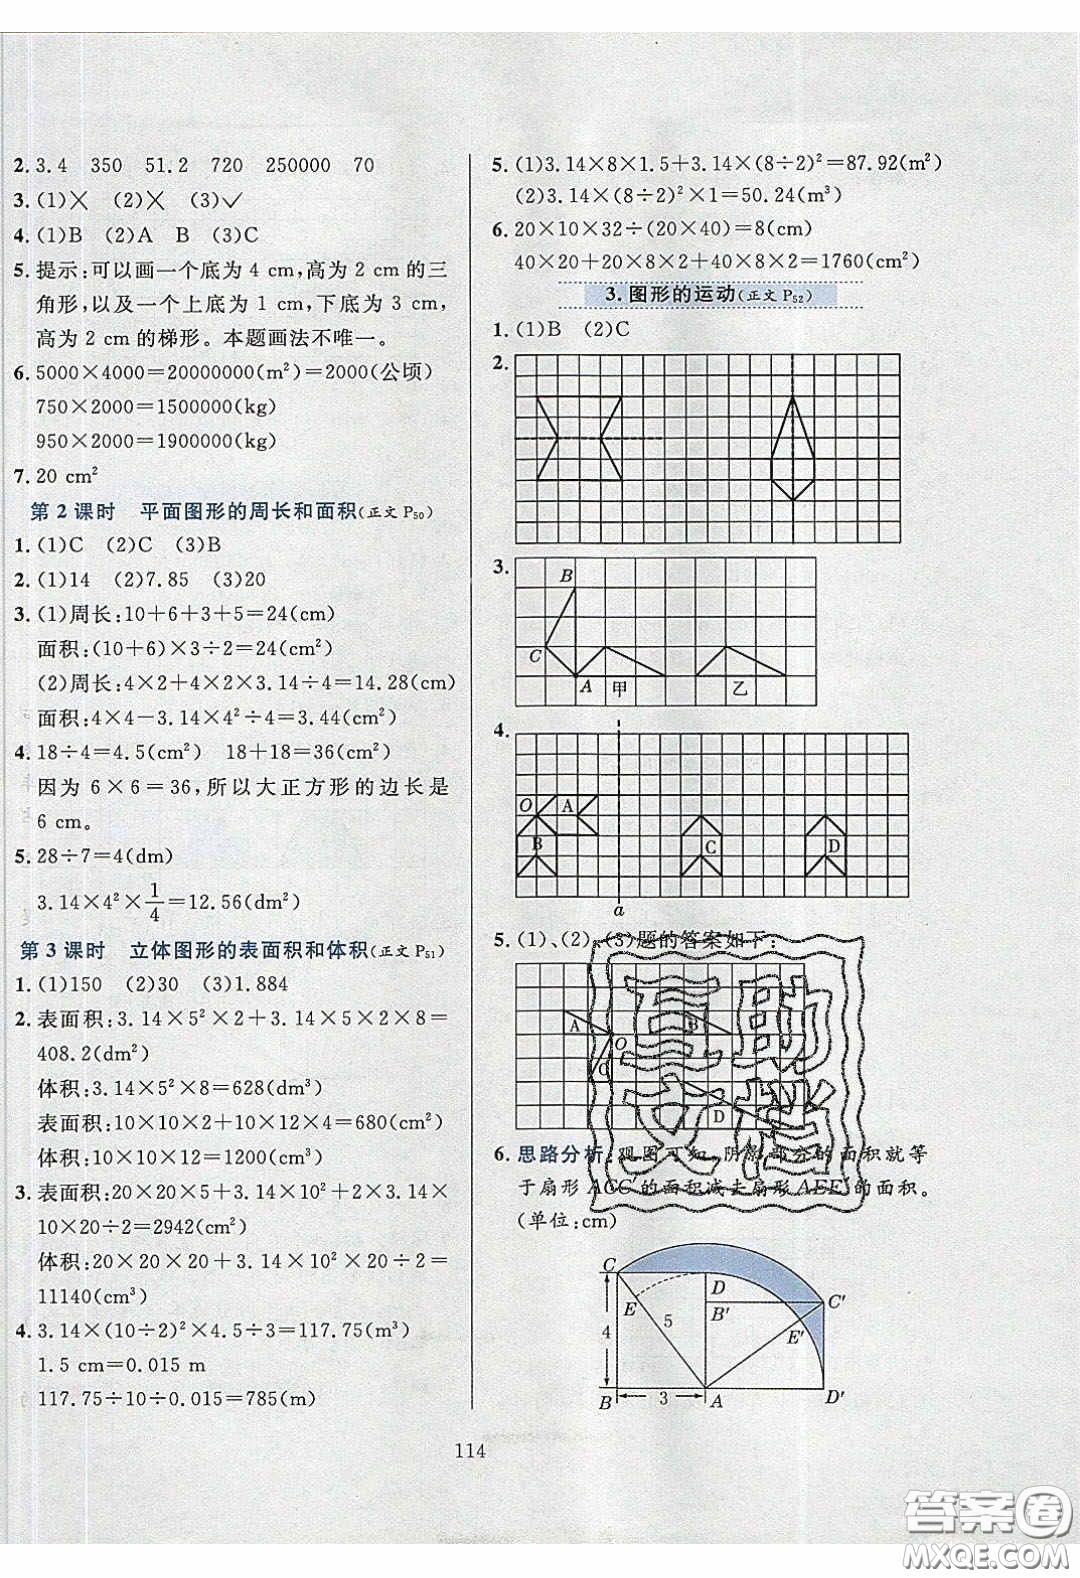 2. 3.4 350 51.2 720 250000 70
3. (1)✕ (2)✕ (3)✓
4. (1)B (2)A B (3)C
5. 提示:可以画一个底为 4 cm,高为 2 cm 的三
角形,以及一个上底为 1 cm,下底为 3 cm,
高为 2 cm 的梯形。本题画法不唯一。
6. 5000×4000=20000000(m²)=2000(公顷)
750×2000=1500000(kg)
950×2000=1900000(kg)
7. 20 cm²
第 2 课时 平面图形的周长和面积(正文 P₅₀)
1. (1)C (2)C (3)B
2. (1)14 (2)7.85 (3)20
3. (1)周长:10+6+3+5=24(cm)
面积:(10+6)×3÷2=24(cm²)
(2)周长:4×2+4×2×3.14÷4=14.28(cm)
面积:4×4-3.14×4²÷4=3.44(cm²)
4. 18÷4=4.5(cm²) 18+18=36(cm²)
因为 6×6=36,所以大正方形的边长是
6 cm。
5. 28÷7=4(dm)
3.14×4²×1/4=12.56(dm²)
第 3 课时 立体图形的表面积和体积(正文 P₅₁)
1. (1)150 (2)30 (3)1.884
2. 表面积:3.14×5²×2+3.14×5×2×8=
408.2(dm²)
体积:3.14×5²×8=628(dm³)
表面积:10×10×2+10×12×4=680(cm²)
体积:10×10×12=1200(cm³)
3. 表面积:20×20×5+3.14×10²+2×3.14×
10×20÷2=2942(cm²)
体积:20×20×20+3.14×10²×20÷2=
11140(cm³)
4. 3.14×(10÷2)²×4.5÷3=117.75(m³)
1.5 cm=0.015 m
117.75÷10÷0.015=785(m)
5. (1)3.14×8×1.5+3.14×(8÷2)²=87.92(m²)
(2)3.14×(8÷2)²×1=50.24(m³)
6. 20×10×32÷(20×40)=8(cm)
40×20+20×8×2+40×8×2=1760(cm²)
3. 图形的运动(正文 P₅₂)
1. (1)B (2)C
2.
3.
B
C
A 甲 乙
4.
O A
B C D
a
5. (1)、(2)、(3)题的答案如下:
A B
O
C
D
互助
文档
6. 思路分析:观图可知,阴影部分的面积就等
于扇形 ACC′的面积减去扇形 AEE′的面积。
(单位:cm)
C D
E B′ C′
4 5 E′
B 3 A D′
114
答案圈
MXQE.COM